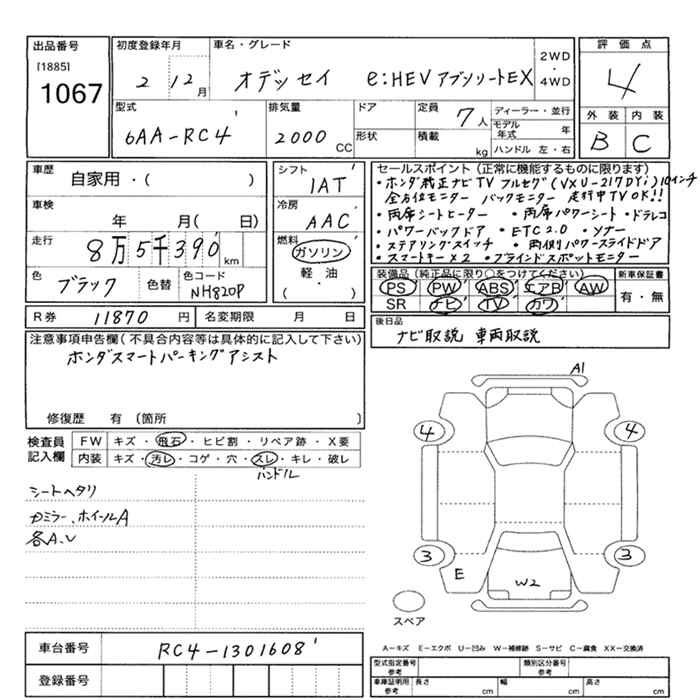 出品番号
[1885]
1067
初度登録年月
2 12月
車名・グレード
オデッセイ e:HEV アブソルートEX
2WD
・
4WD
評価点
4
外装 内装
B C
型式
6AA-RC4
排気量
2000 CC
ドア
形状
定員
7人
積載
kg
ディーラー・並行
モデル年式 年
ハンドル 左・右
車歴
自家用・( )
車検
年 月( 日)
走行
8万5千390km
色
ブラック
色替
色コード
NH820P
シフト
IAT
冷房
AAC
燃料
ガソリン
軽・油
( )
セールスポイント(正常に機能するものに限ります)
・ホンダ純正ナビTV フルセグ(VXU-217DYi)10インチ
全方位モニター バックモニター 走行中TVOK!!
・両席シートヒーター ・両席パワーシート ・ドラレコ
・パワーバックドア ・ETC2.0 ・ソナー
・ステアリングスイッチ ・両側パワースライドドア
・スマートキー×2 ・ブラインドスポットモニター
装備品(純正品に限り○をつけてください)
PS PW ABS エアB AW
SR ナビ TV カワ
新車保証書
有・無
R券 11870円
名変期限 月 日
後日品
ナビ取説 車両取説
注意事項申告欄(不具合内容等は具体的に記入して下さい)
ホンダスマートパーキングアシスト
修復歴 有(箇所 )
検査員
記入欄
FW キズ・飛石・ヒビ割・リペア跡・X要
内装 キズ・汚レ・コゲ・穴・スレ・キレ・破レ
ハンドル
シートヘタリ
ミラー、ホイールA
各A、U
A1
4 4
3 3
E
W2
スペア
車台番号 RC4-1301608
登録番号
A-キズ E-エクボ U-凹み W-補修跡 S-サビ C-腐食 XX-交換済
型式指定番号
参考
類別区分番号
参考
車庫証明用
参考
長さ cm 幅 cm 高さ cm